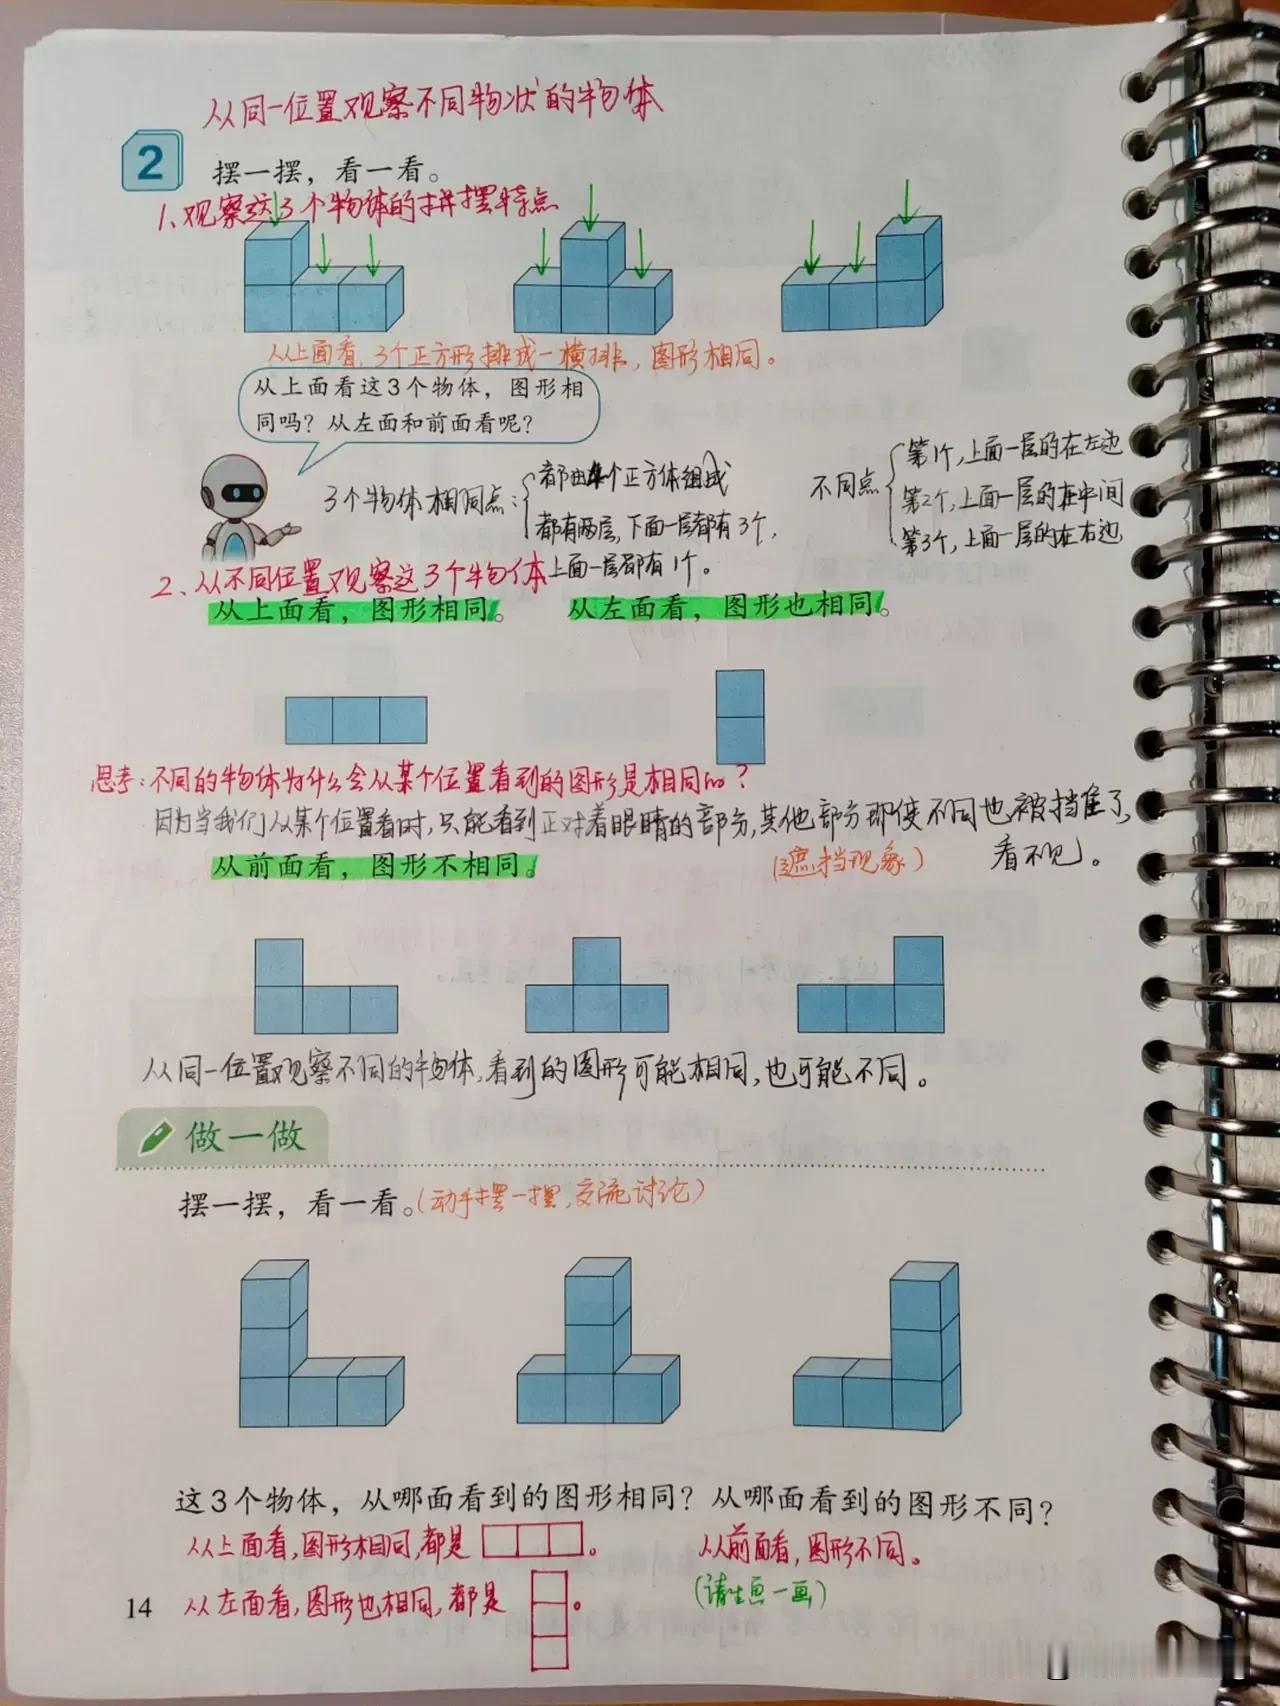 从同一位置观察不同物状的物体
2
摆一摆，看一看。
1、观察这3个物体的拼摆特点
从上面看，3个正方形排成一横排，图形相同。
从上面看这3个物体，图形相
同吗？从左面和前面看呢？
3个物体相同点：
都由4个正方体组成
都有两层，下面一层都有3个，
上面一层都有1个。
不同点
第1个，上面一层的在左边
第2个，上面一层的在中间
第3个，上面一层的在右边
2、从不同位置观察这3个物体
从上面看，图形相同。 从左面看，图形也相同。
思考：不同的物体为什么会从某个位置看到的图形是相同的？
因为当我们从某个位置看时，只能看到正对着眼睛的部分，其他部分即使不同也被挡住了，
看不见。
（遮挡现象）
从前面看，图形不相同。
从同一位置观察不同的物体，看到的图形可能相同，也可能不同。
做一做
摆一摆，看一看。（动手摆一摆，交流讨论）
这3个物体，从哪面看到的图形相同？从哪面看到的图形不同？
从上面看，图形相同，都是。 从前面看，图形不同。
（请生画一画）
从左面看，图形也相同，都是。
14